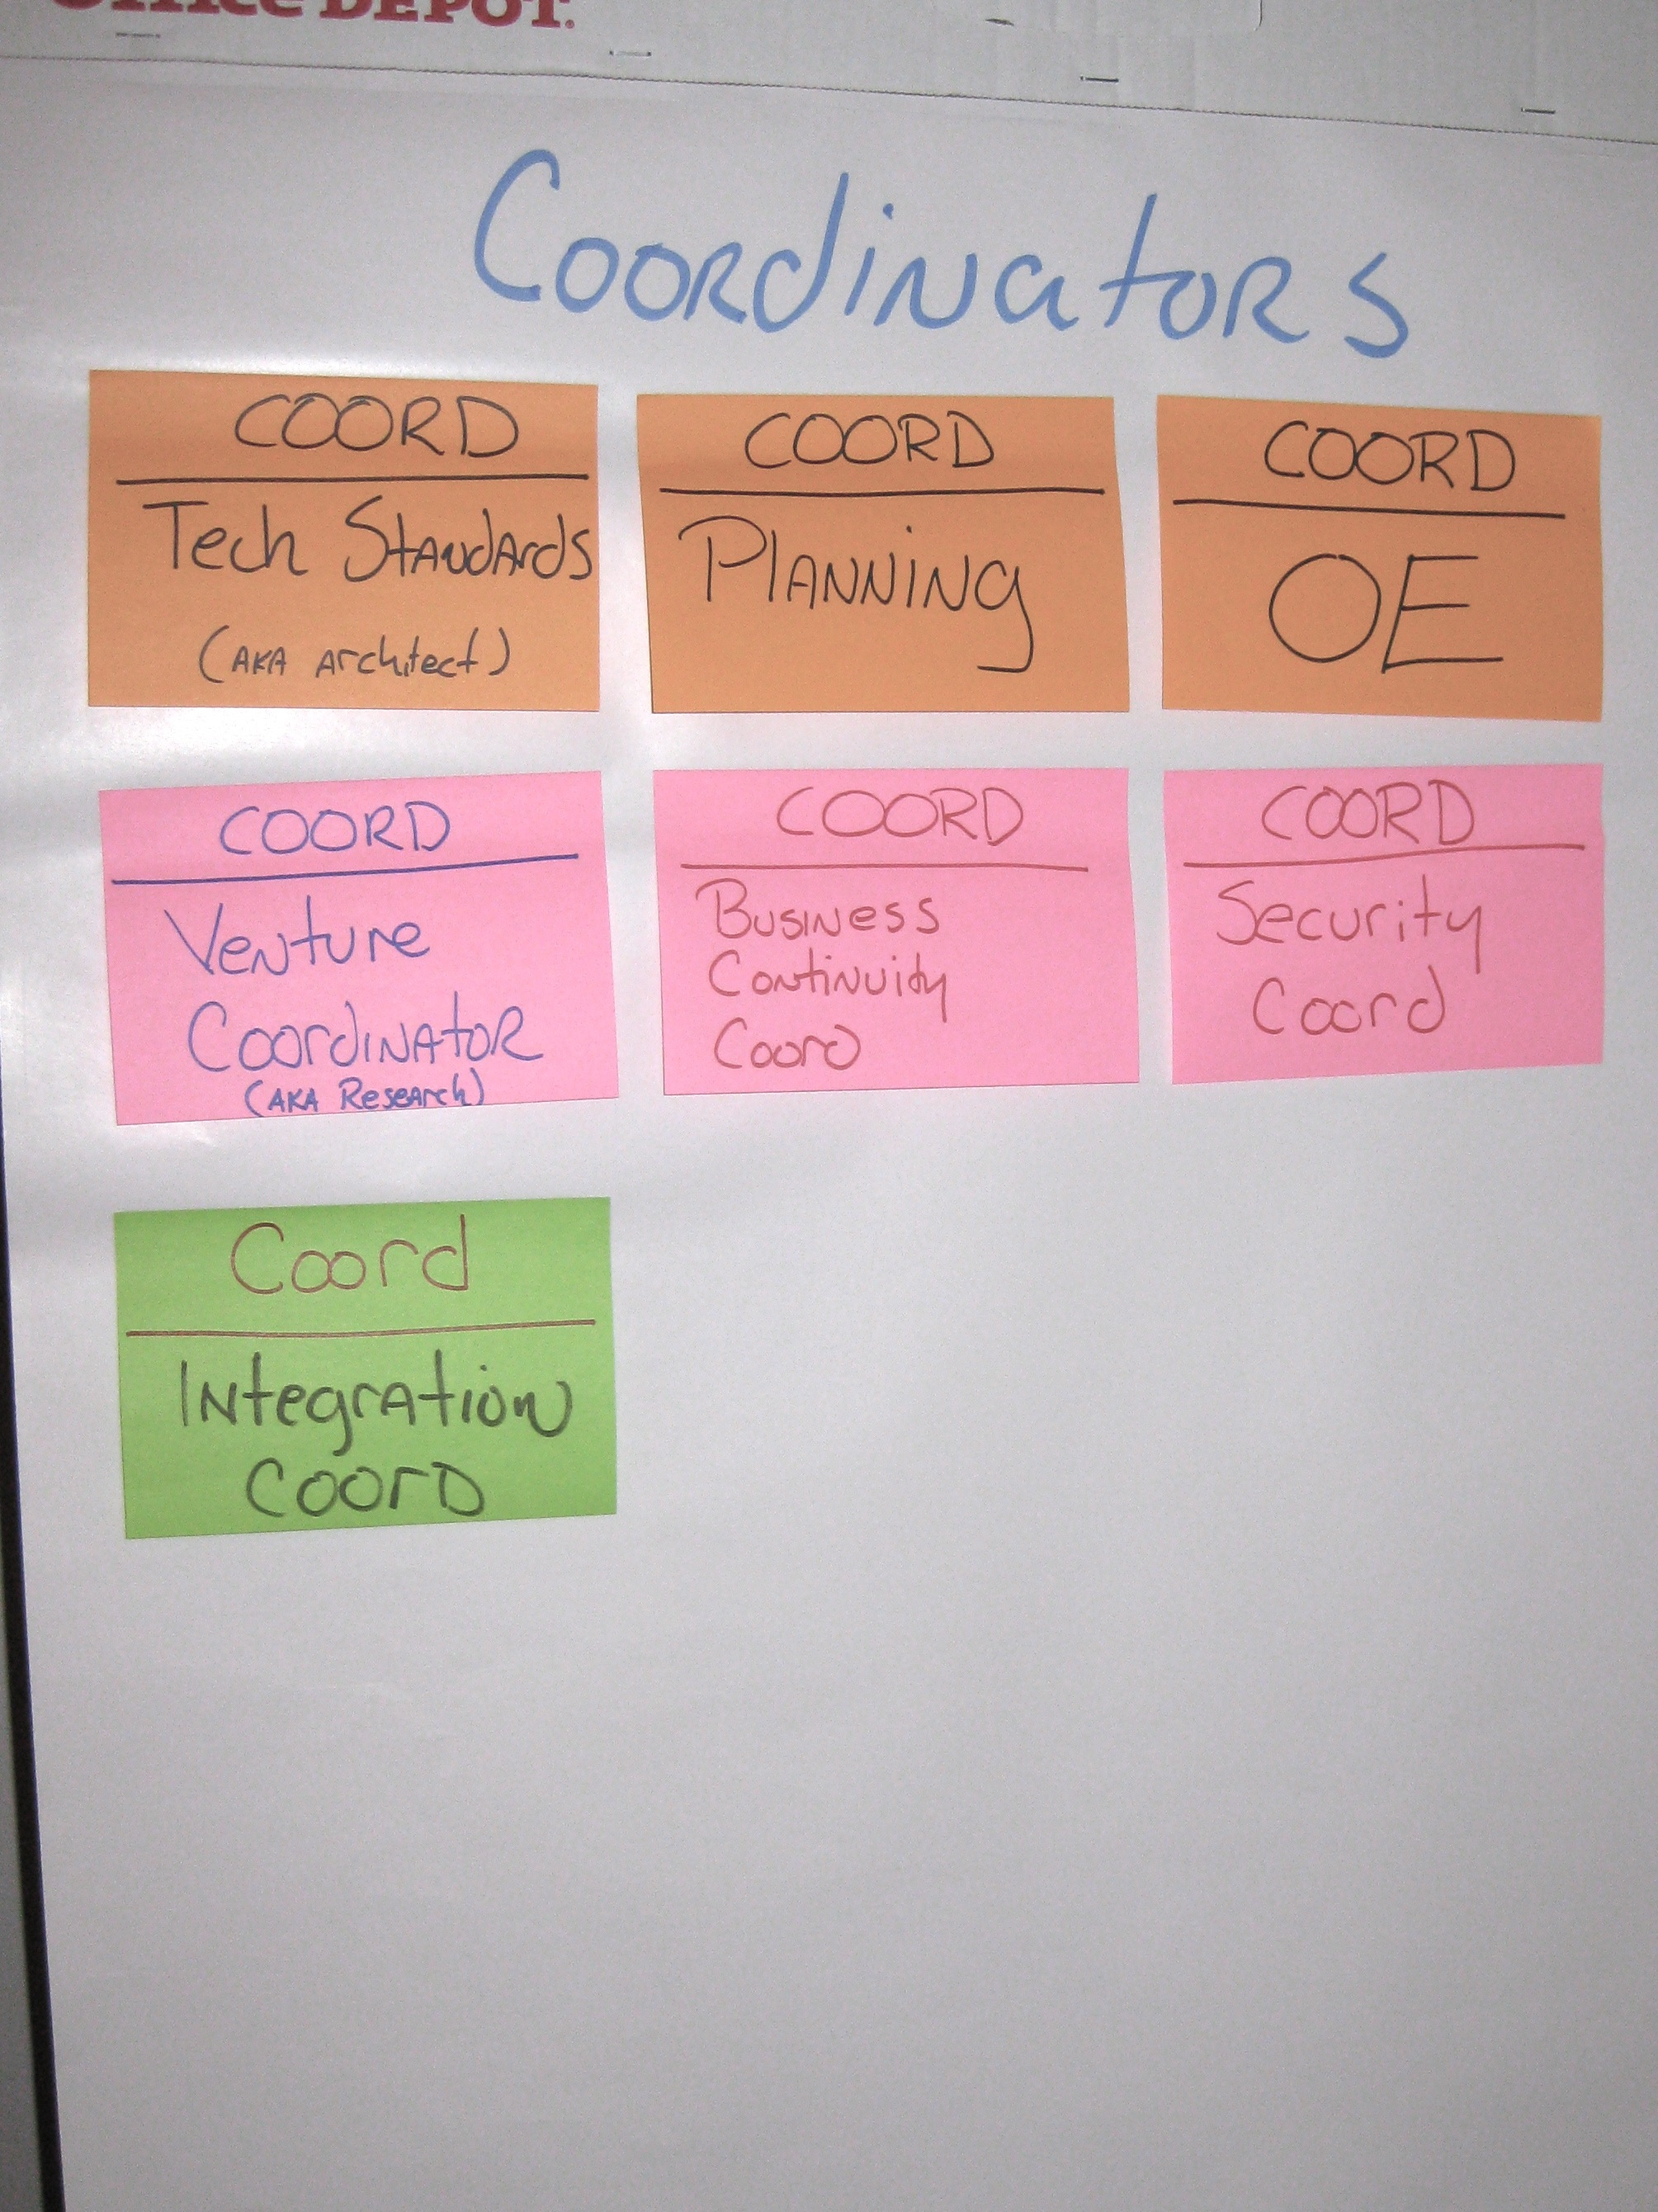 Office DEPOT.
Coordinators
COORD
Tech Standards
(AKA Architect)
COORD
Planning
COORD
OE
COORD
Venture
Coordinator
(AKA Research)
COORD
Business
Continuity
Coord
COORD
Security
Coord
Coord
Integration
Coord